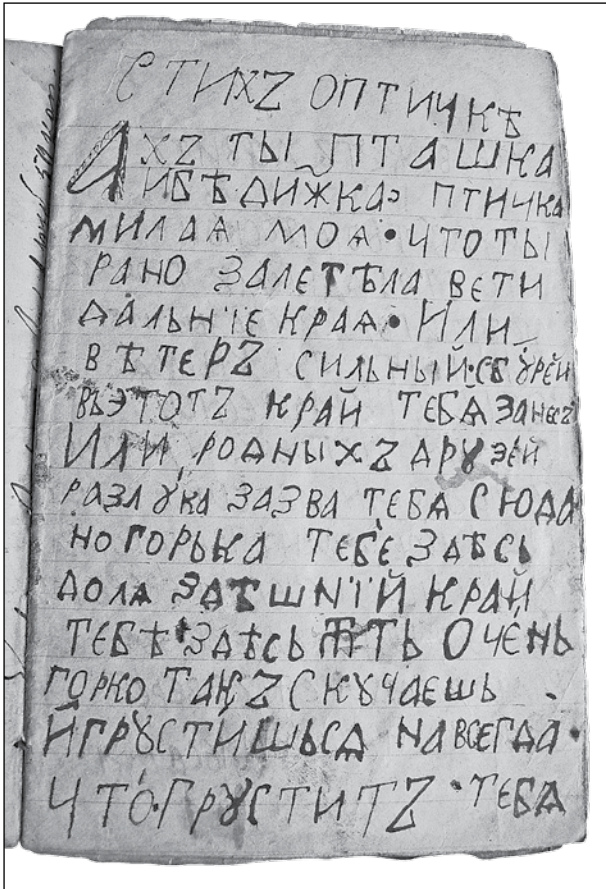 СТИХЪ ОПТИЧКѢ
АХЪ ТЫ ПТАШКА
ИБѢДИЖКА ПТИЧКА
МИЛАѦ МОѦ • ЧТО ТЫ
РАНО ЗАЛЕТѢЛА ВЕТИ
ДАЛЬНІЕ КРАѦ • ИЛИ
ВѢТЕРЪ СИЛЬНЫЙ•СБꙊРЕЙ
ВЪЭТОТЪ КРАЙ ТЕБѦ ЗАНЕСЪ
ИЛИ РОДНЫХЪ ДРꙊЗЕЙ
РАЗЛꙊКА ЗАЗВА ТЕБѦ СЮДА
НОГОРЬКА ТЕБЕ ЗДѢСЬ
ДОЛѦ ЗДѢШНІЙ КРАЙ
ТЕБѢ ЗДѢСЬ ОЧЕНЬ
ГОРКО ТАКЪ СКꙊЧАЕШЬ
ЙГРꙊСТИШЬСѦ НАВСЕГДА •
ЧТО•ГРꙊСТИТЪ • ТЕБѦ